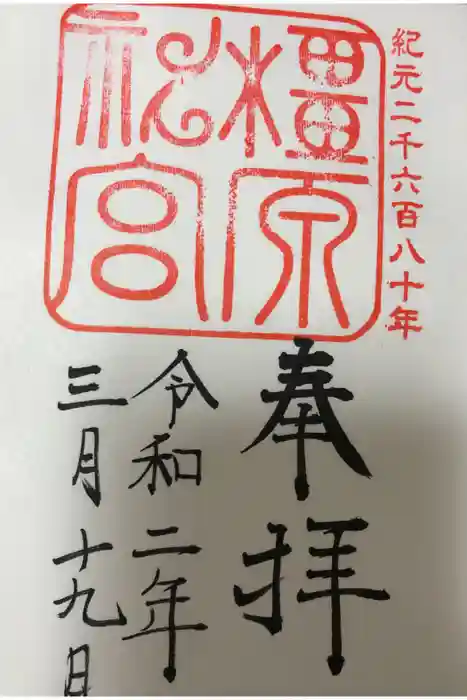 紀元二千六百八十年
橿原
神宮
奉拝
令和二年
三月十九日